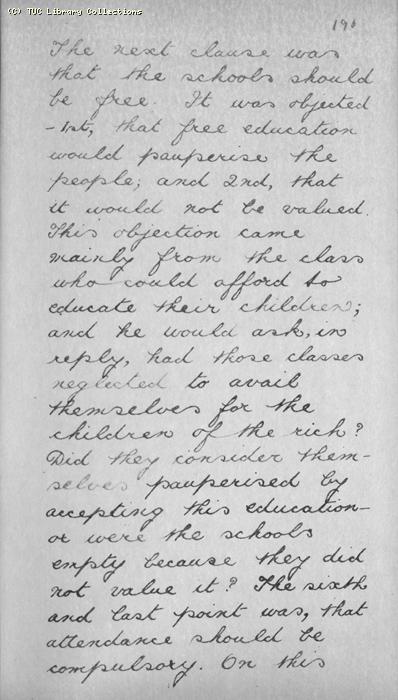 (C) TUC Library Collections
191
The next clause was
that the schools should
be free. It was objected
- 1st, that free education
would pauperise the
people; and 2nd, that
it would not be valued.
This objection came
mainly from the class
who could afford to
educate their children;
and he would ask, in
reply, had those classes
neglected to avail
themselves for the
children of the rich?
Did they consider them-
selves pauperised by
accepting this education -
or were the schools
empty because they did
not value it? The sixth
and last point was, that
attendance should be
compulsory. On this